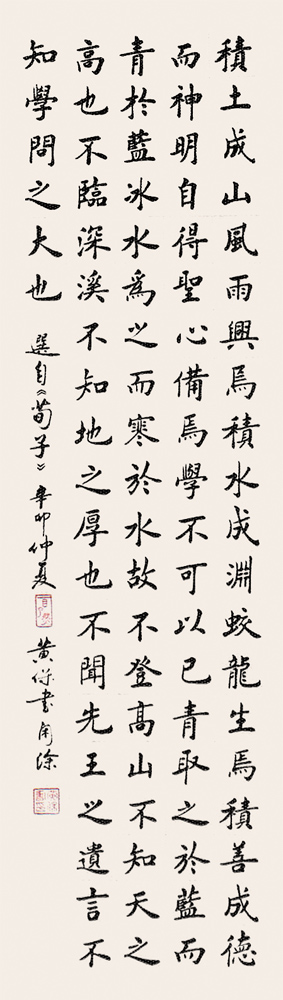 積土成山風雨興焉積水成淵蛟龍生焉積善成德
而神明自得聖心備焉學不可以已青取之於藍而
青於藍冰水為之而寒於水故不登高山不知天之
高也不臨深溪不知地之厚也不聞先王之遺言不
知學問之大也 選自《荀子》辛卯仲夏 黃